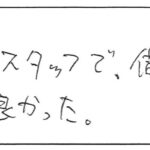 スタッフで、
良かった。